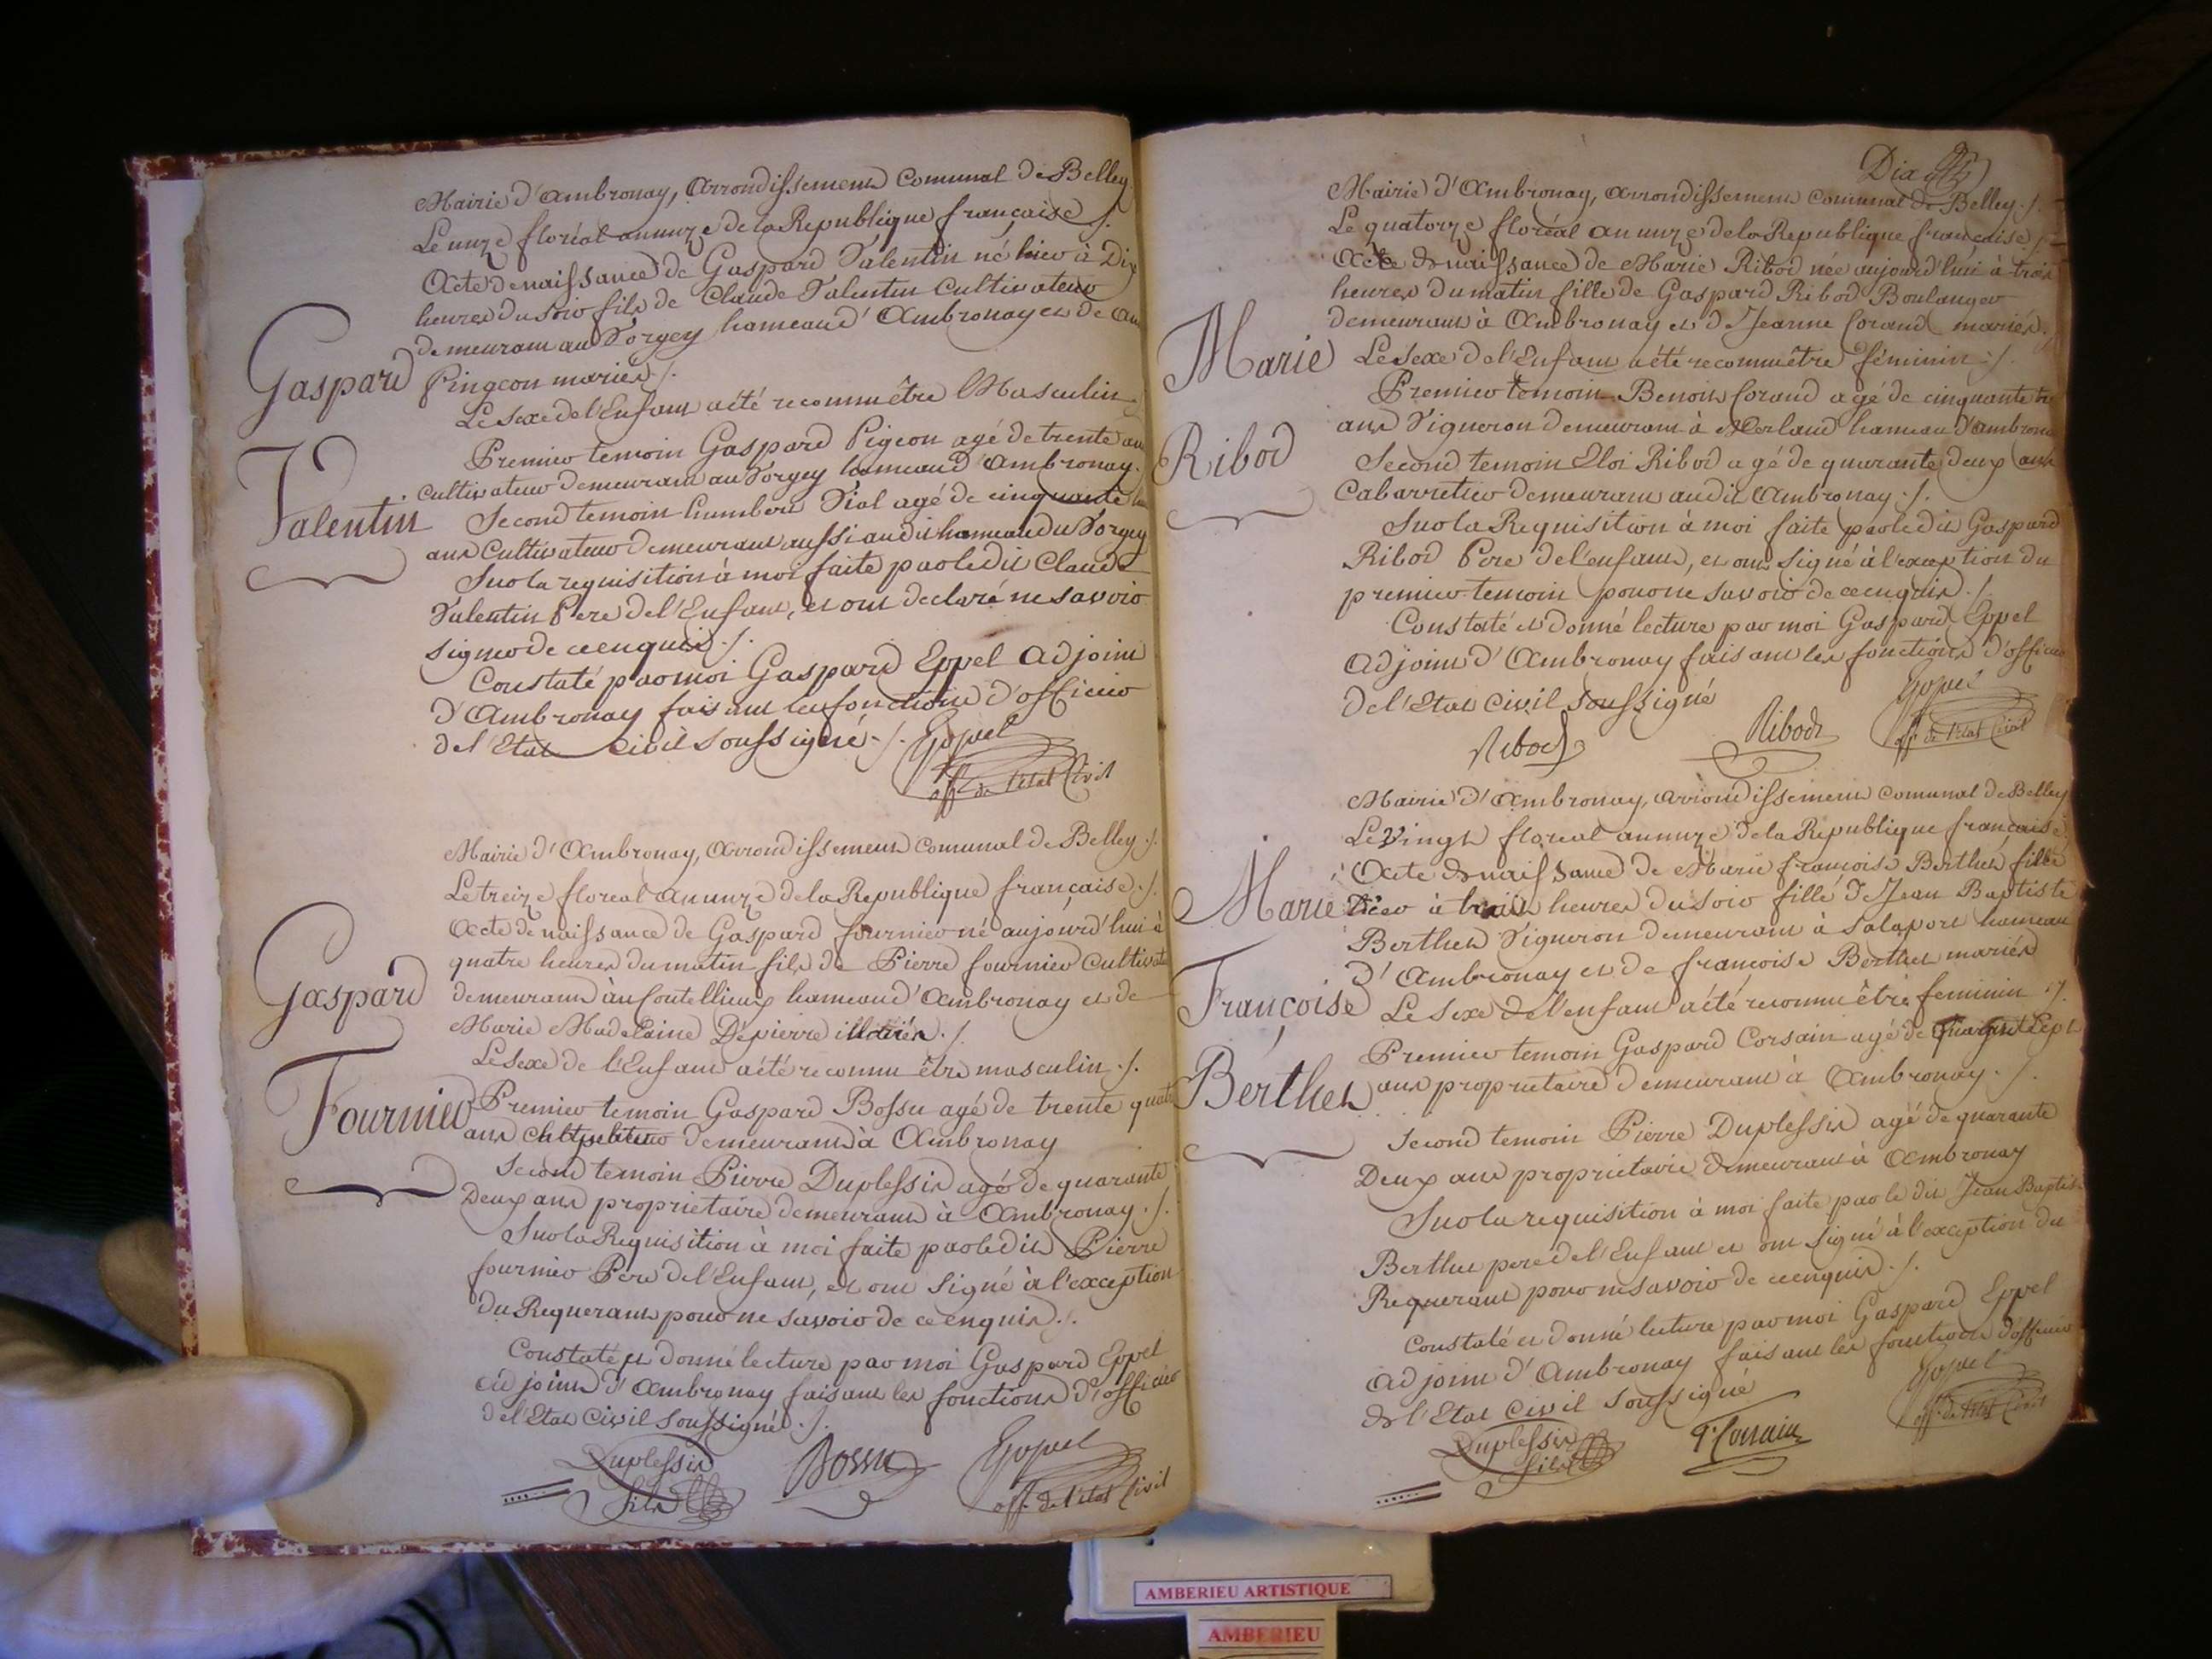 Mairie d'Ambronay, Arrondissement Comunal de Belley
Le onze floréal an onze de la Republique française ./.
Acte de naissance de Gaspard Valentin né hier à Dix
heures du soir fils de Claude Valentin Cultivateur
demeurant au Vorgey hameau d'Ambronay et de
Gaspard
Pingeon mariés ./.
Le sexe de l'Enfant a été reconnu être Masculin
Premier temoin Gaspard Pigeon agé de trente ans
Cultivateur demeurant au Vorgey hameau d'Ambronay.
Valentin
Second temoin humbert Vial agé de cinquante
ans Cultivateur demeurant aussi audit hameau du Vorgey
Sur la requisition à moi faite par le dit Claude
Valentin Pere de l'Enfant, et ont declaré ne savoir
signer de ce enquis ./.
Constaté par moi Gaspard Eppel adjoint
d'Ambronay faisant les fonctions d'officier
de l'Etat Civil soussigné ./. Eppel
off. de l'état Civil
Mairie d'Ambronay, Arrondissement Comunal de Belley ./.
Le treize floreal an onze de la Republique française ./.
Acte de naissance de Gaspard fournier né aujourd'hui à
quatre heures du matin fils de Pierre fournier Cultivat
Gaspard
demeurant au Coutellieux hameau d'Ambronay et de
Marie Madelaine Depierre mariés ./.
Le sexe de l'Enfant a été reconnu être masculin ./.
Fournier
Premier temoin Gaspard Bossu agé de trente quatre
ans demeurant à Ambronay
Second temoin Pierre Duplessis agé de quarante
Deux ans proprietaire demeurant à Ambronay ./.
Sur la Requisition à moi faite par le dit Pierre
fournier Pere de l'Enfant, et ont signé à l'exception
du Requerant pour ne savoir de ce enquis ./.
Constaté et donné lecture par moi Gaspard Eppel
adjoint d'Ambronay faisant les fonctions d'officier
de l'Etat Civil soussigné ./.
Duplessis
fils
Bossu
Eppel
off. de l'état Civil
Dix
Mairie d'Ambronay, arrondissement Comunal de Belley ./.
Le quatorze floréal an onze de la Republique française ./.
Acte de naissance de Marie Ribod née aujourd'hui à trois
heures du matin fille de Gaspard Ribod Boulanger
demeurant à Ambronay et de Jeanne Corand mariés ./.
Marie
Le sexe de l'Enfant a été reconnu être féminin ./.
Premier temoin Benoit Corand agé de cinquante
ans Vigneron demeurant à Merland hameau d'Ambronay
Ribod
Second temoin Eloi Ribod agé de quarante deux ans
Cabarretier demeurant audit Ambronay ./.
Sur la Requisition à moi faite par le dit Gaspard
Ribod Pere de l'enfant, et ont signé à l'exception du
premier temoin pour ne savoir de ce enquis ./.
Constaté et donné lecture par moi Gaspard Eppel
Adjoint d'Ambronay faisant les fonctions d'officier
de l'Etat Civil soussigné
Ribod
Ribod
Eppel
off. de l'état Civil
Mairie d'Ambronay, arrondissement Comunal de Belley
Le Vingt floreal an onze de la Republique française
Acte de naissance de Marie françoise Berthet fille
Marie
hier à trois heures du soir fille de Jean Baptiste
Berthet Vigneron demeurant à Salaport hameau
d'Ambronay et de françoise Berthet mariés
Françoise
Le sexe de l'enfant a été reconnu être feminin ./.
Premier temoin Gaspard Corsain agé de sept
Berthet
ans proprietaire demeurant à Ambronay ./.
Second temoin Pierre Duplessis agé de quarante
Deux ans proprietaire demeurant à Ambronay
Sur la requisition à moi faite par le dit Jean Baptiste
Berthet pere de l'Enfant et ont signé à l'exception du
Requerant pour ne savoir de ce enquis ./.
Constaté et donné lecture par moi Gaspard Eppel
adjoint d'Ambronay faisant les fonctions d'officier
de l'Etat Civil soussigné
Duplessis
fils
Corsain
Eppel
off. de l'état Civil
AMBERIEU ARTISTIQUE
AMBERIEU